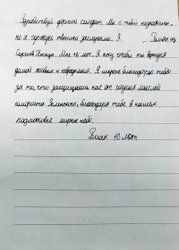 Здравствуй дорогой солдат. Мы с тобой незнакомы,
но я горжусь твоими заслугами. Я Роман из
Сергей Мне 10 лет. Я хочу чтобы ты вернулся
домой живым и невредимым. Я искренне благодарю тебя
за то, что защищаешь нас от
Зеленского, благодаря тебе в нашем
мирное небо.
Роман 10 лет